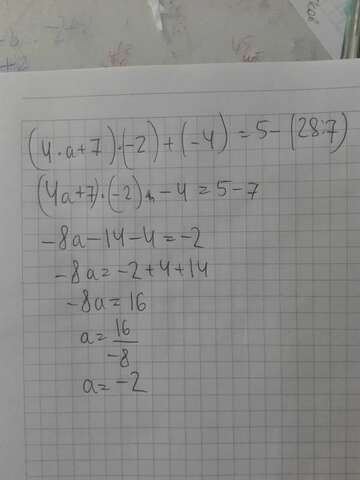 (4·a+7)·(-2)+(-4)=5-(28:7)
(4a+7)·(-2)-4=5-7
-8a-14-4=-2
-8a=-2+4+14
-8a=16
a=16/-8
a=-2